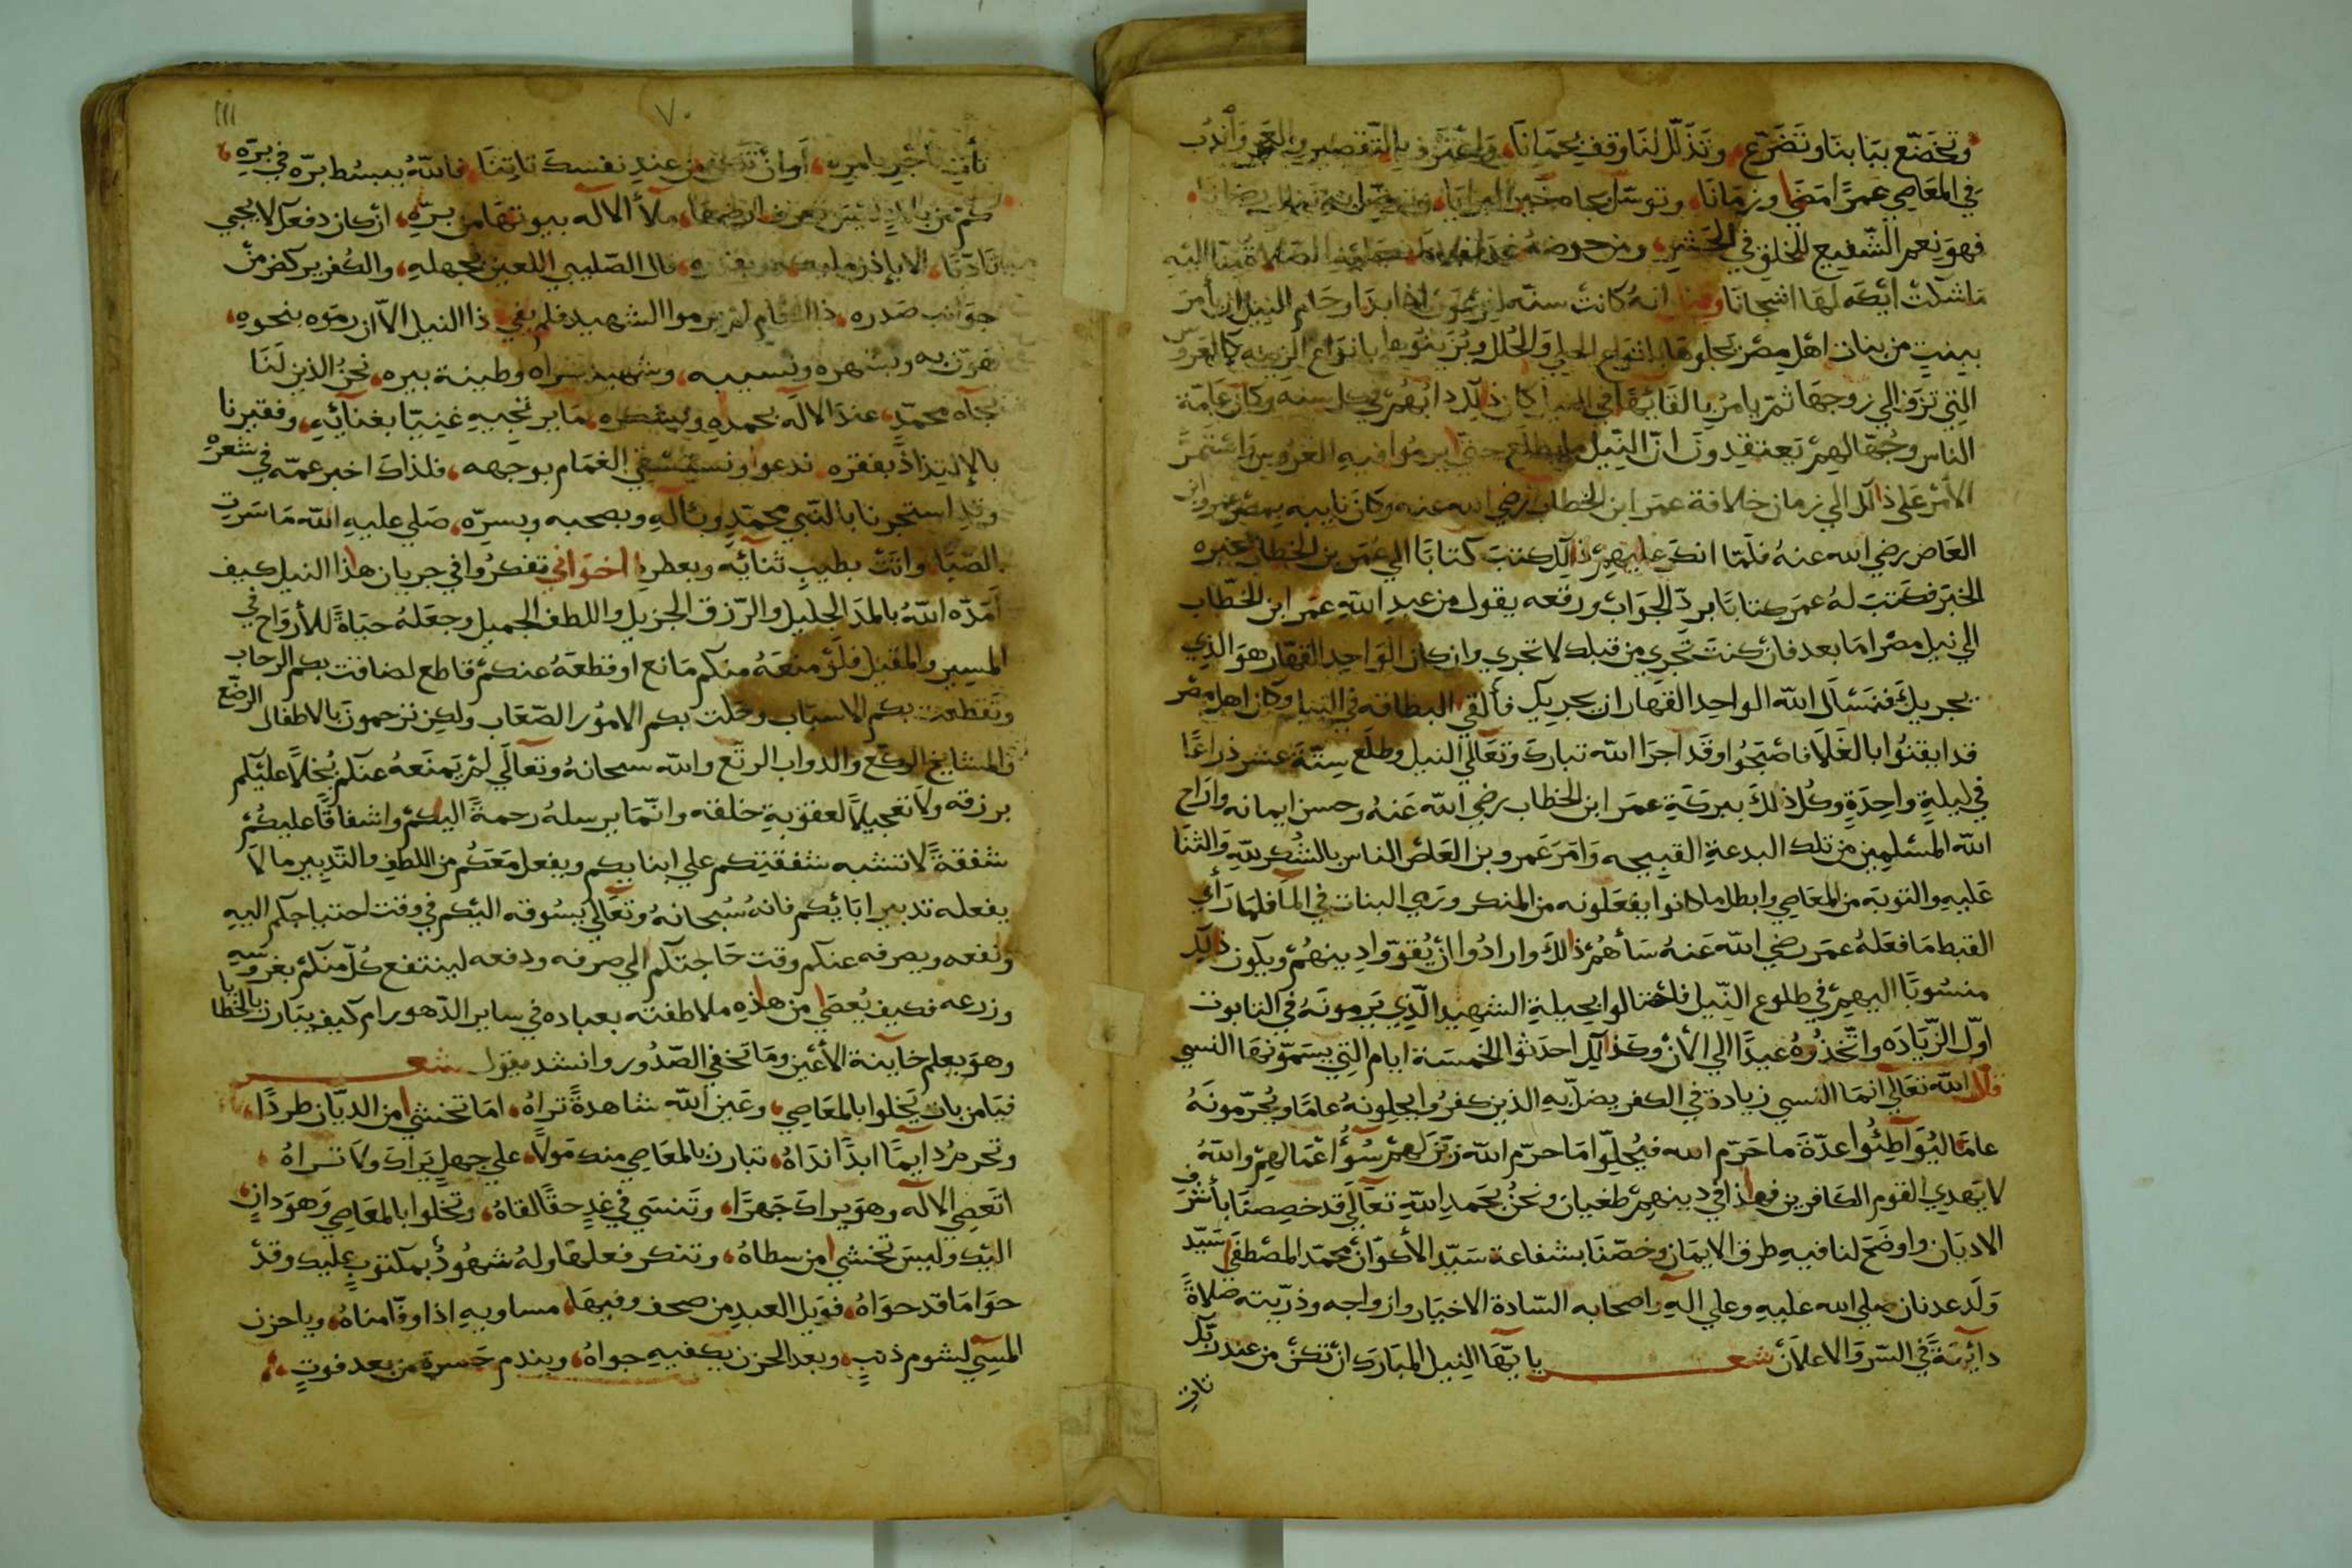 وتخضّع ببابنا وتضرّع وتذلّل لنا وقف بحمانا واعترف بالتقصير والعجز واندب
في المعاصي عمرًا مضى وزمانا وتوسّل بجاه خير البرايا
فهو نعم الشفيع للخلق في الحشر ومن حوضه غدا
ما شكت ايكة لها اشجانا انه كانت سنة اذا بدا وحام النيل ان يأمر
ببنت من بنات اهل مصر يجلوها بانواع الحلي والحلل ويزينوها بانواع الزينة كالعروس
التي تزف الي زوجها ثم يامر بالقائها في كان ذلك دابهم في كل سنه وكان عامّة
الناس وجهّالهم يعتقدون انّ النيل ما يطلع حتي يرموا فيه العروس واستمرّ
الأمر على ذلك الي زمان خلافة عمر ابن الخطاب رضي الله عنه وكان نايبه بمصر عمرو ابن
العاص رضي الله عنه فلمّا انكر عليهم ذلك كتب كتابًا الي عمر بن الخطاب يخبره
الخبر فكتب له عمر كتابًا برد الجواب ورقعه يقول من عبد الله عمر ابن الخطّاب
الي نيل مصر اما بعد فان كنت تجري من قبلك لا تجري وان كان الواحد القهّار هو الذي
يجريك فنسئل الله الواحد القهار ان يجريك فألقي البطاقه في النيل وكان اهل مصر
قد ايقنوا بالغلا فاصبحوا وقد اجرا الله تبارك وتعالي النيل وطلع ستّة عشر ذراعًا
في ليلةٍ واحدةٍ وكل ذلك ببركة عمر ابن الخطاب رضي الله عنه وحسن ايمانه واراح
الله المسلمين من تلك البدعة القبيحه وامر عمرو بن العاص الناس بالشكر لله والثنا
عليه والتوبة من المعاصي وابطل ما كانوا يفعلونه من المنكر ورمي البنات في الما فلما رأي
القبط ما فعله عمر رضي الله عنه سأهم ذلك وارادوا ان يقوّوا دينهم ويكون ذلك
منسوبًا اليهم في طلوع النيل فاحتالوا بحيلة الشهيد الّذي يرمونه في التابوت
اوّل الزّياده واتخذوه عيدًا الي الأن وكذلك احدثوا الخمسة ايام التي يسمّونها النسي
قال الله تعالي انما النسي زيادة في الكفر يضلّ به الذين كفروا يحلونه عامًا ويحرّمونه
عامًا ليواطئوا عدّة ما حرّم الله فيحلّوا ما حرّم الله زيّن لهم سوُ اعمالهم والله
لا يهدي القوم الكافرين فهذا في دينهم طغيان ونحن بحمد الله تعالى قد خصصنا بأشرف
الاديان واوضح لنا فيه طرق الايمان وخصّنا بشفاعة سيّد الأكوان محمّد المصطفي سيّد
ولد عدنان صلى الله عليه وعلي اله واصحابه السّادة الاخيار وازواجه وذرّيته صلاةً
دايمةً في السّر والاعلان شعـــر يا ايّها النيل المبارك ان تكن من عند ربّك
تات
١١١
٧٠
تأتي بامره او ان تكن من عند نفسك تاتنا فالله يبسط برّه في برّه
كم من بلاد ملأ الاله بيوتها من برّه ان كان دفعك لا يجي
الا بإذن قال الصّليبي اللعين بجهله والكفر يركض من
جوانب صدره لم يرموا الشهيد فلم يفي ذا النيل الاّ ان رموه بنحره
وطينة بيره نحن الذين لنا
بجاه محمّد عند الاله بحمده وبشكره ما يرتجيه غنيّنا بغنائه وفقيرنا
بفقره ندعوا ونستسقي الغمام بوجهه فلذاك اخبر عمّه في شعره
وقد استجرنا بالنّبي محمّد وبآله وبصحبه وبسرّه صلي عليه الله ما سرت
الصّبا واتت بطيب ثنائه وبعطره اخواني تفكروا في جريان هذا النيل كيف
امدّه الله بالمد الجليل والرّزق الجزيل واللطف الجميل وجعله حياةً للأرواح في
المسير والمقيل فلو منعه منكم مانع او قطعه عنكم قاطع لضاقت بكم الرحاب
وتقطعت بكم الاسباب وحلت بكم الامور الصّعاب ولكن ترحمون بالاطفال الرضّع
والمشايخ الركّع والدواب الرتّع والله سبحانه وتعالي لم يمنعه عنكم بخلاً عليكم
برزقه ولا تعجيلاً لعقوبة خلقه وانّما يرسله رحمةً اليكم واشفاقًا عليكم
شفقةً لا تشبه شفقتكم علي ابنايكم ويفعل معكم من اللطف والتدبير ما لا
يفعله تدبير ابائكم فانه سبحانه وتعالي يسوقه اليكم في وقت احتياجكم اليه
ونفعه ويصرفه عنكم وقت حاجتكم الي صرفه ودفعه لينتفع كلّ منكم بغروسه
وزرعه فكيف يعصي من هذه ملاطفته بعباده في ساير الدّهور ام كيف يبارز بالخطايا
وهو يعلم خاينة الأعين وما تخفي الصّدور وانشد يقول شعـــر
فيا من بات يخلوا بالمعاصي وعين الله شاهدةً تراهُ اما تخشي من الديّان طردًا
وتحرم دايمًا ابدًا نداهُ تبارز بالمعاصي منك مولاً علي جهلٍ يراك ولا تراهُ
اتعصي الاله وهو يراك جهرًا وتنسي في غدٍ حقًا لقاهُ وتخلوا بالمعاصي وهو دانٍ
اليك وليس تخشي من سطاهُ وتنكر فعلها وله شهودٌ بمكتوبٍ عليك وقد
حوا ما قد حواهُ فويل العبد من صحف وفيها مساويه اذا وفّا مناهُ ويا حزن
المسي لشوم ذنبٍ وبعد الحزن يكفيه جواهُ ويندم حسرة من بعد فوتٍ